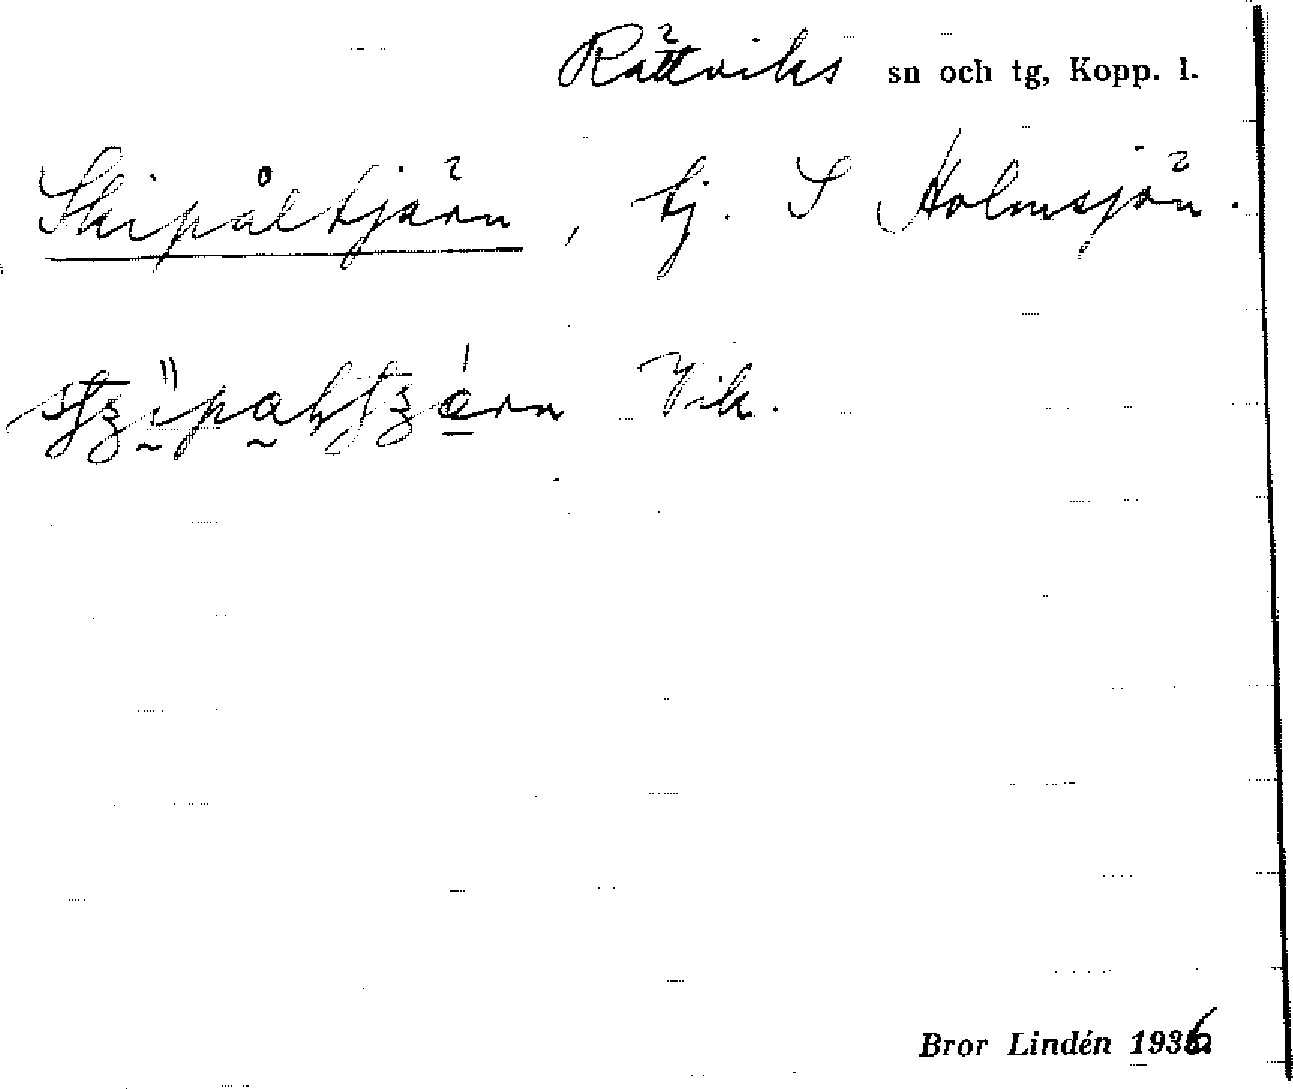 Rättviks sn och tg, Kopp. l.
Skipåltjärn, tj. S Holmsjön.
Vik.
Bror Lindén 1936